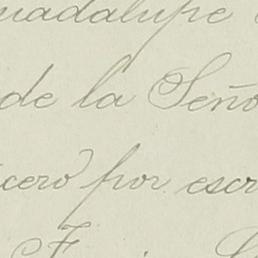 uadalupe
de la Seño
cero por escr